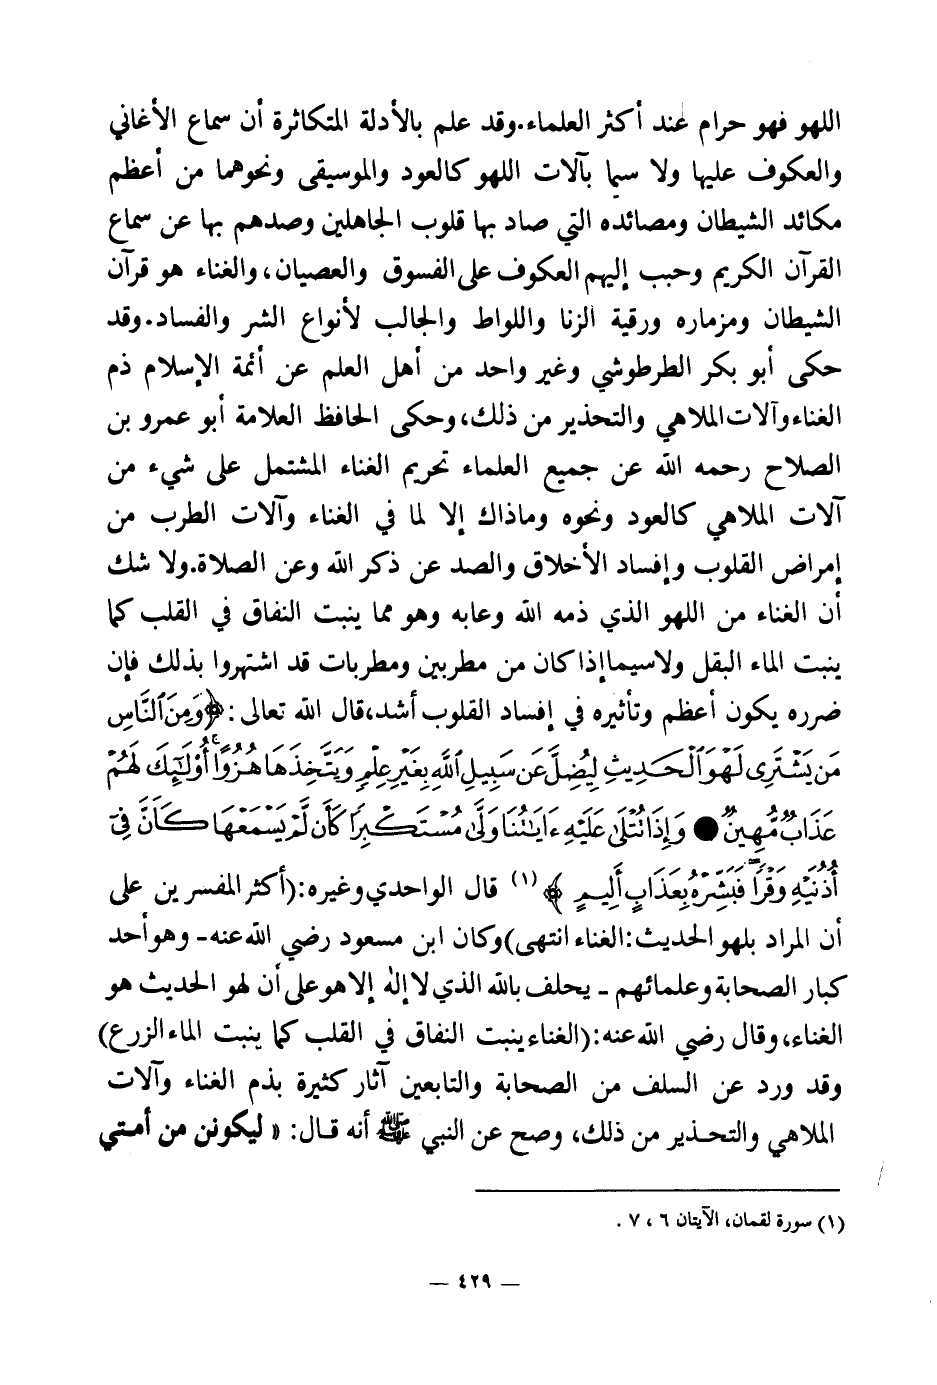 اللهو فهو حرام عند أكثر العلماء. وقد علم بالأدلة المتكاثرة أن سماع الأغاني
والعكوف عليها ولا سيما بآلات اللهو كالعود والموسيقى ونحوهما من أعظم
مكائد الشيطان ومصائده التي صاد بها قلوب الجاهلين وصدهم بها عن سماع
القرآن الكريم وحبب إليهم العكوف على الفسوق والعصيان، والغناء هو قرآن
الشيطان ومزماره ورقية الزنا واللواط والجالب لأنواع الشر والفساد. وقد
حكى أبو بكر الطرطوشي وغير واحد من أهل العلم عن أئمة الإسلام ذم
الغناء وآلات الملاهي والتحذير من ذلك، وحكى الحافظ العلامة أبو عمرو بن
الصلاح رحمه الله عن جميع العلماء تحريم الغناء المشتمل على شيء من
آلات الملاهي كالعود ونحوه وماذاك إلا لما في الغناء وآلات الطرب من
إمراض القلوب وإفساد الأخلاق والصد عن ذكر الله وعن الصلاة. ولا شك
أن الغناء من اللهو الذي ذمه الله وعابه وهو مما ينبت النفاق في القلب كما
ينبت الماء البقل ولاسيما إذا كان من مطربين ومطربات قد اشتهروا بذلك فإن
ضرره يكون أعظم وتأثيره في إفساد القلوب أشد، قال الله تعالى: ﴿وَمِنَ ٱلنَّاسِ
مَن يَشْتَرِى لَهْوَ ٱلْحَدِيثِ لِيُضِلَّ عَن سَبِيلِ ٱللَّهِ بِغَيْرِ عِلْمٍ وَيَتَّخِذَهَا هُزُوًا ۚ أُوْلَٰٓئِكَ لَهُمْ
عَذَابٌ مُّهِينٌ ● وَإِذَا تُتْلَىٰ عَلَيْهِ ءَايَٰتُنَا وَلَّىٰ مُسْتَكْبِرًا كَأَن لَّمْ يَسْمَعْهَا كَأَنَّ فِىٓ
أُذُنَيْهِ وَقْرًا ۖ فَبَشِّرْهُ بِعَذَابٍ أَلِيمٍ ﴾ (١) قال الواحدي وغيره: (أكثر المفسرين على
أن المراد بلهو الحديث: الغناء انتهى) وكان ابن مسعود رضي الله عنه - وهو أحد
كبار الصحابة وعلمائهم - يحلف بالله الذي لا إله إلا هو على أن لهو الحديث هو
الغناء، وقال رضي الله عنه: (الغناء ينبت النفاق في القلب كما ينبت الماء الزرع)
وقد ورد عن السلف من الصحابة والتابعين آثار كثيرة بذم الغناء وآلات
الملاهي والتحذير من ذلك، وصح عن النبي ﷺ أنه قال: « ليكونن من أمتي
(١) سورة لقمان، الآيتان ٦ ، ٧ .
— ٤٢٩ —